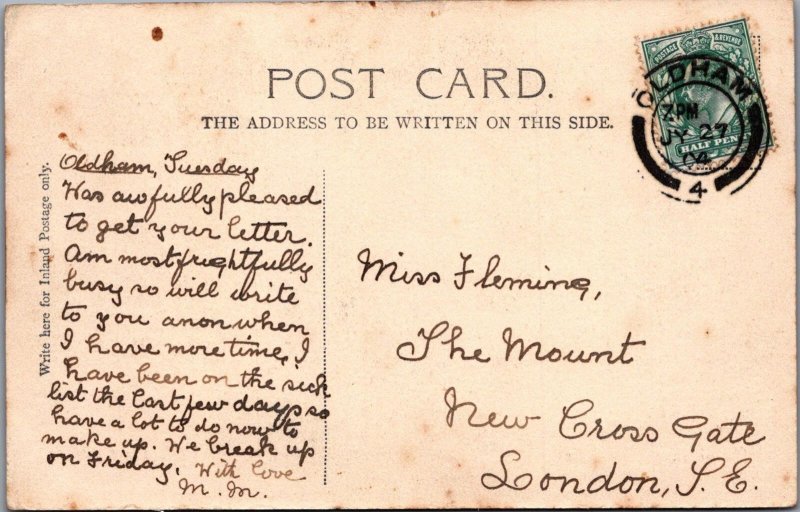 POST CARD.
THE ADDRESS TO BE WRITTEN ON THIS SIDE.
POSTAGE & REVENUE
HALF PEN
OLDHAM
7 PM
JY 27
04
4
Write here for Inland Postage only.
Oldham, Tuesday
Was awfully pleased
to get your letter.
Am most frightfully
busy so will write
to you anon when
I have more time, I
have been on the sick
list the last few days so
have a lot to do now to
make up. We break up
on Friday. With love
M. M.
Miss Fleming,
The Mount
New Cross Gate
London, S.E.